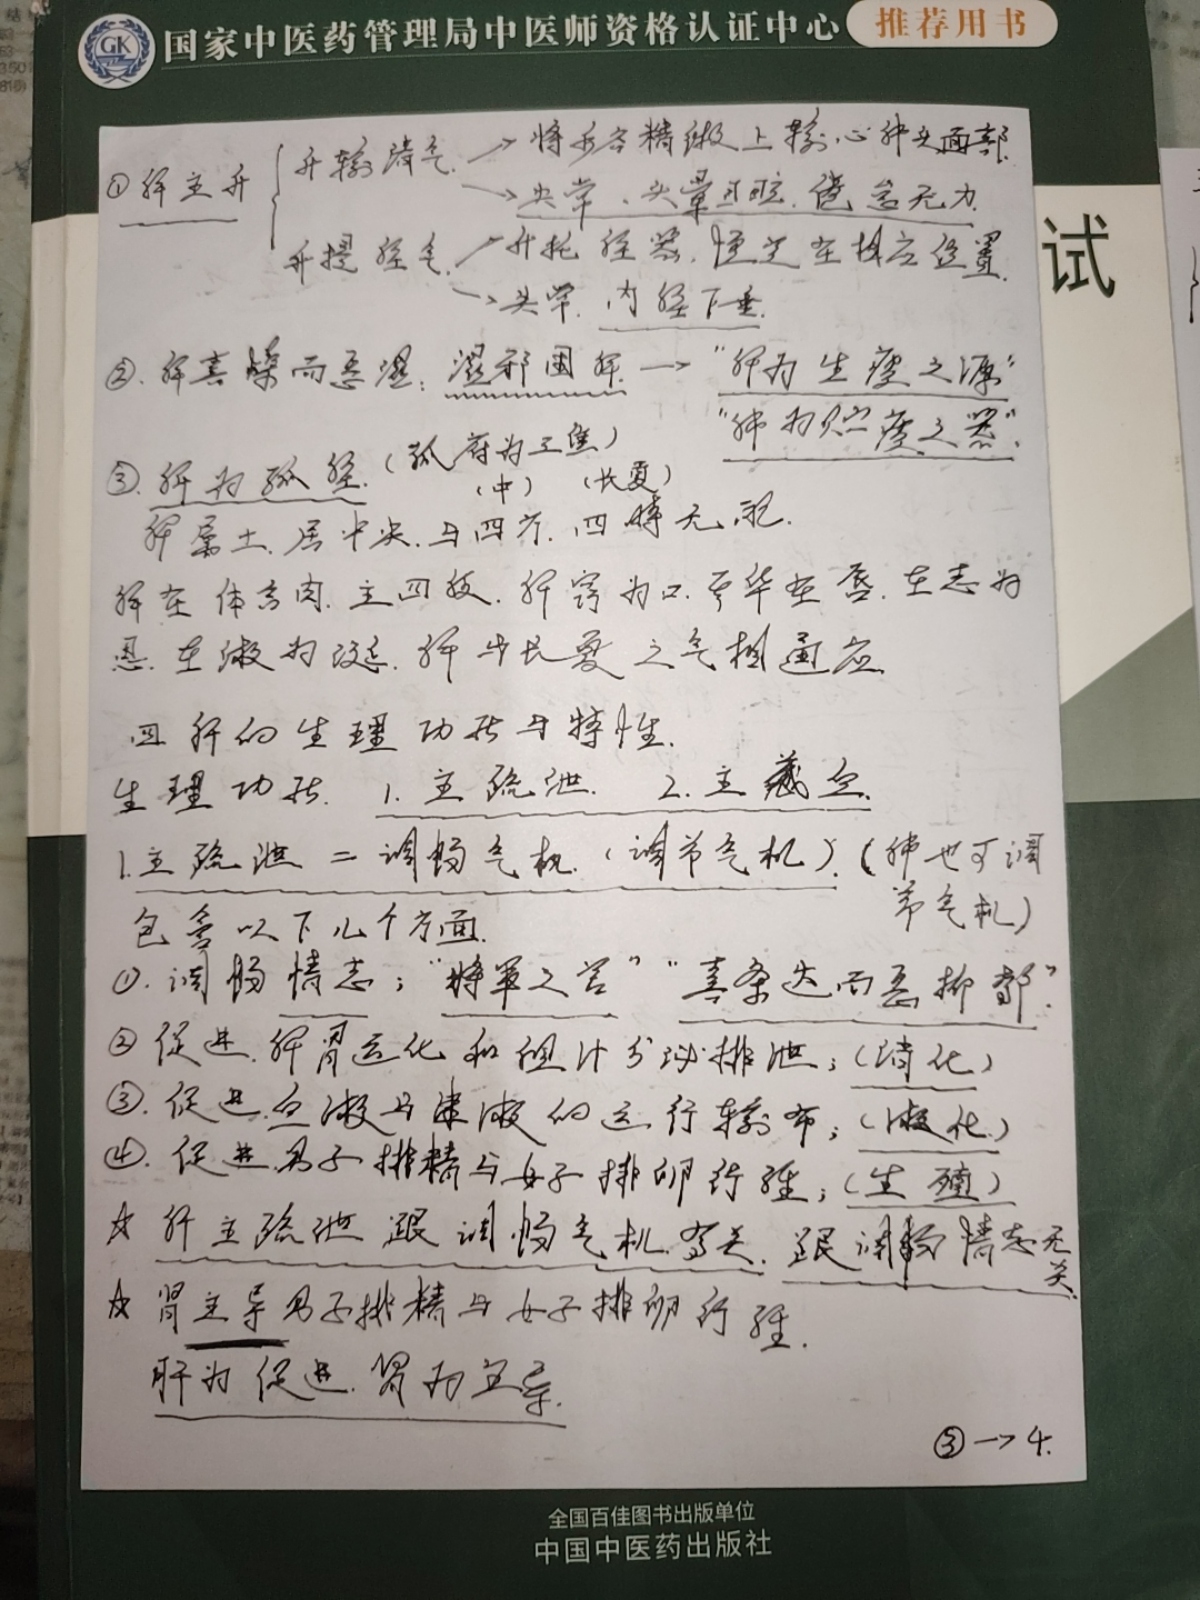 国家中医药管理局中医师资格认证中心 推荐用书
GK
试
①脾主升
升输清气 → 将水谷精微上输心肺头面部.
→ 失常、头晕目眩、倦怠无力.
升提脏气. → 升托脏器, 恒定在相应位置.
→ 失常. 内脏下垂.
②. 脾喜燥而恶湿: 湿邪困脾 → "脾为生痰之源"
"肺为贮痰之器".
③. 脾为孤脏. (孤府为三焦)
(中) (长夏)
脾属土. 居中央. 与四方, 四时无配.
脾在体合肉. 主四肢. 脾窍为口. 其华在唇. 在志为
思. 在液为涎. 脾与长夏之气相通应.
四 肝的生理功能与特性.
生理功能. 1. 主疏泄. 2. 主藏血.
1. 主疏泄 = 调畅气机. (调节气机). (肺也可调
节气机)
包含以下几个方面.
①. 调畅情志; "将军之官" "喜条达而恶抑郁".
② 促进. 脾胃运化和胆汁分泌排泄; (消化)
③. 促进. 血液与津液的运行输布; (液化)
④. 促进. 男子排精与女子排卵行经; (生殖)
☆ 肝主疏泄跟调畅气机有关. 跟调畅情志无
关.
☆ 肾主导男子排精与女子排卵行经.
肝为促进. 肾为主导.
③→4.
全国百佳图书出版单位
中国中医药出版社